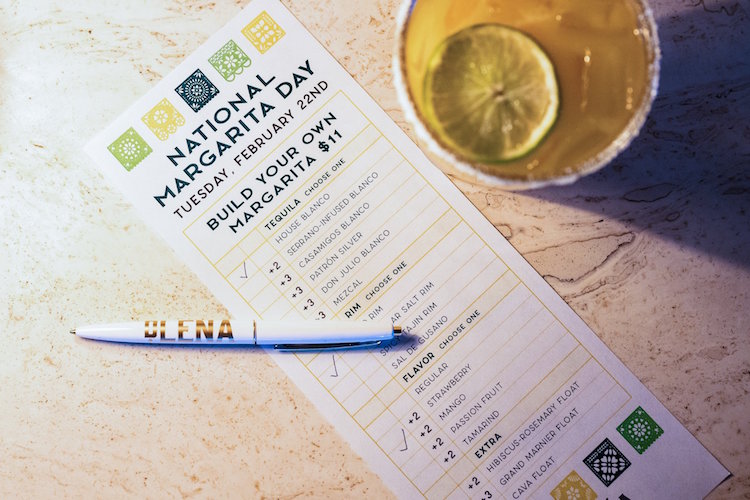 NATIONAL
MARGARITA DAY
TUESDAY, FEBRUARY 22ND
BUILD YOUR OWN
MARGARITA $11
TEQUILA CHOOSE ONE
HOUSE BLANCO
+2 SERRANO-INFUSED BLANCO
+3 CASAMIGOS BLANCO
+3 PATRÓN SILVER
+3 DON JULIO BLANCO
+3 MEZCAL
RIM CHOOSE ONE
SALT RIM
RIM
SAL DE GUSANO
FLAVOR CHOOSE ONE
REGULAR
+2 STRAWBERRY
+2 MANGO
+2 PASSION FRUIT
+2 TAMARIND
EXTRA
+2 HIBISCUS-ROSEMARY FLOAT
+3 GRAND MARNIER FLOAT
CAVA FLOAT
BLENA